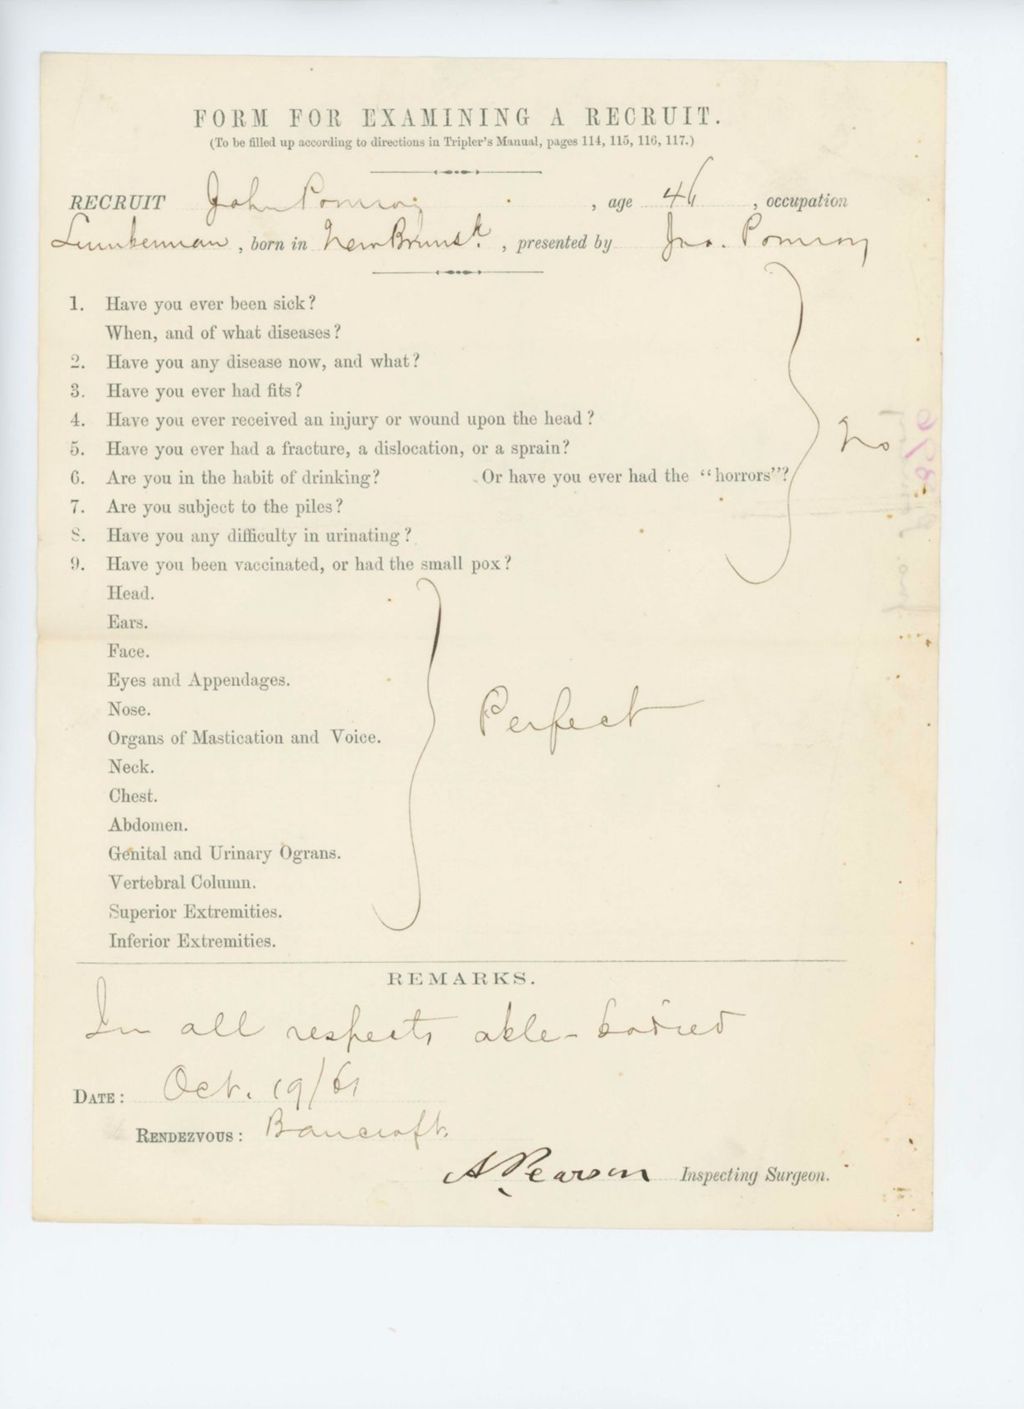 FORM FOR EXAMINING A RECRUIT.
(To be filled up according to directions in Tripler's Manual, pages 114, 115, 116, 117.)
RECRUIT John Pomroy , age 46 , occupation
Lumberman , born in New Brunsk , presented by Jno. Pomroy
1. Have you ever been sick?
When, and of what diseases?
2. Have you any disease now, and what?
3. Have you ever had fits?
4. Have you ever received an injury or wound upon the head?
5. Have you ever had a fracture, a dislocation, or a sprain?
No
6. Are you in the habit of drinking? Or have you ever had the "horrors"?
7. Are you subject to the piles?
8. Have you any difficulty in urinating?
9. Have you been vaccinated, or had the small pox?
Head.
Ears.
Face.
Eyes and Appendages.
Nose.
Perfect
Organs of Mastication and Voice.
Neck.
Chest.
Abdomen.
Genital and Urinary Ograns.
Vertebral Column.
Superior Extremities.
Inferior Extremities.
REMARKS.
In all respects able-bodied
DATE: Oct. 19/61
RENDEZVOUS: Bancroft.
A Pearson Inspecting Surgeon.